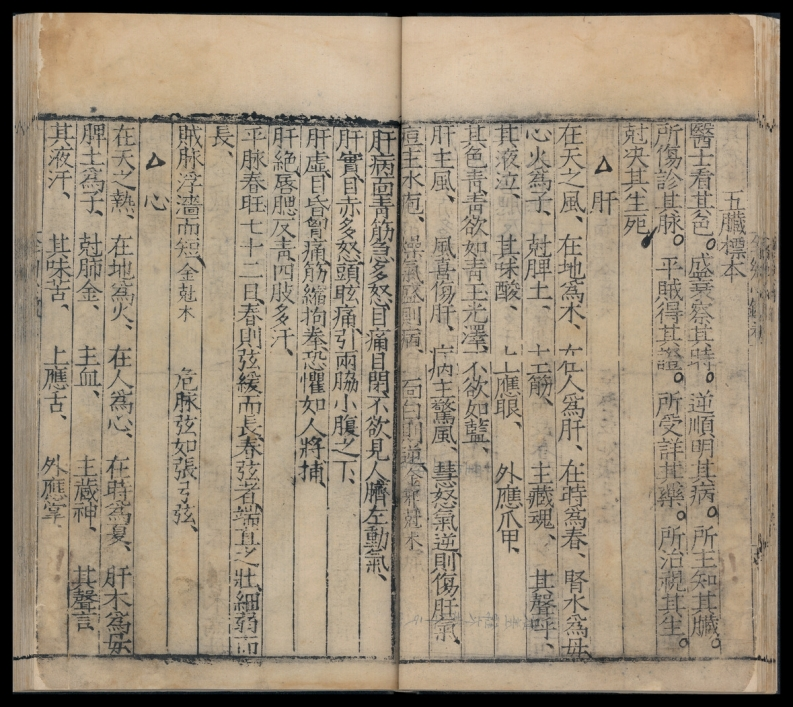 五臟標本
醫士看其色。盛衰察其時。逆順明其病。所主知其臟。
所傷診其脉。平賊得其證。所受詳其藥。所治視其生。
尅决其生死
△肝
在天之風、在地爲木、在人爲肝、在時爲春、腎水爲母、
心火爲子、尅脾土、主筋、主藏魂、其聲呼、
其液泣、其味酸、上應眼、外應爪甲、
其色青青欲如青玉光澤、不欲如藍、
肝主風、風喜傷肝、病主驚風、恚怒氣逆則傷肝氣、
痘主水疱、燥氣盛則病、面白則逆、
肝病面青筋急多怒目痛目閉、不欲見人臍左動氣、
肝實目赤多怒頭眩痛、引兩脇小腹之下、
肝虛目昏胷痛筋縮拘拳恐懼如人將捕、
肝絶唇肥反青四肢多汗、
平脉春旺七十二日、春則弦緩而長春弦者端直之壯、細弱而
長、
賊脉浮濇而短、金尅木 危脉弦如張弓弦、
△心
在天之熱、在地爲火、在人爲心、在時爲夏、肝木爲母
脾土爲子、尅肺金、主血、主藏神、其聲言
其液汗、其味苦、上應舌、外應掌、